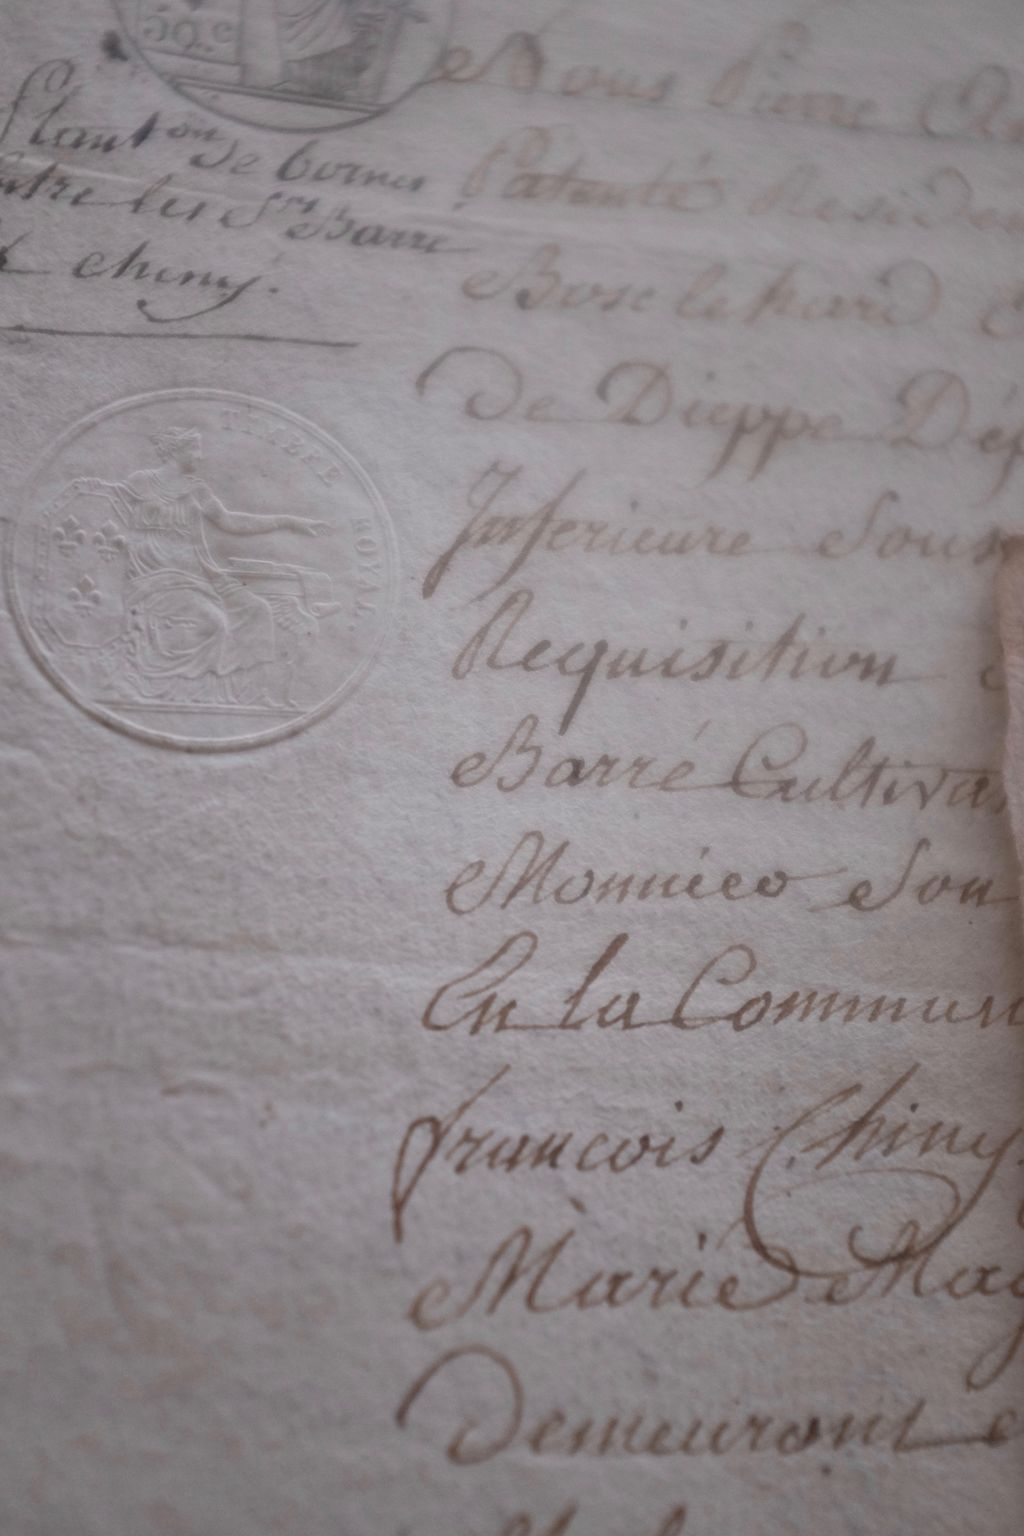 50.c
Plant.on de bornes
entre les Srs Barré
& Chiny.
TIMBRE ROYAL
Nous Pierre
Patenté Residen
Bosc le hard
de Dieppe Dép
Inferieure Sous
Requisition
Barré Cultivat
Monnieo Son
En la Commun
françois Chiny
Marie Mag
Demeurant